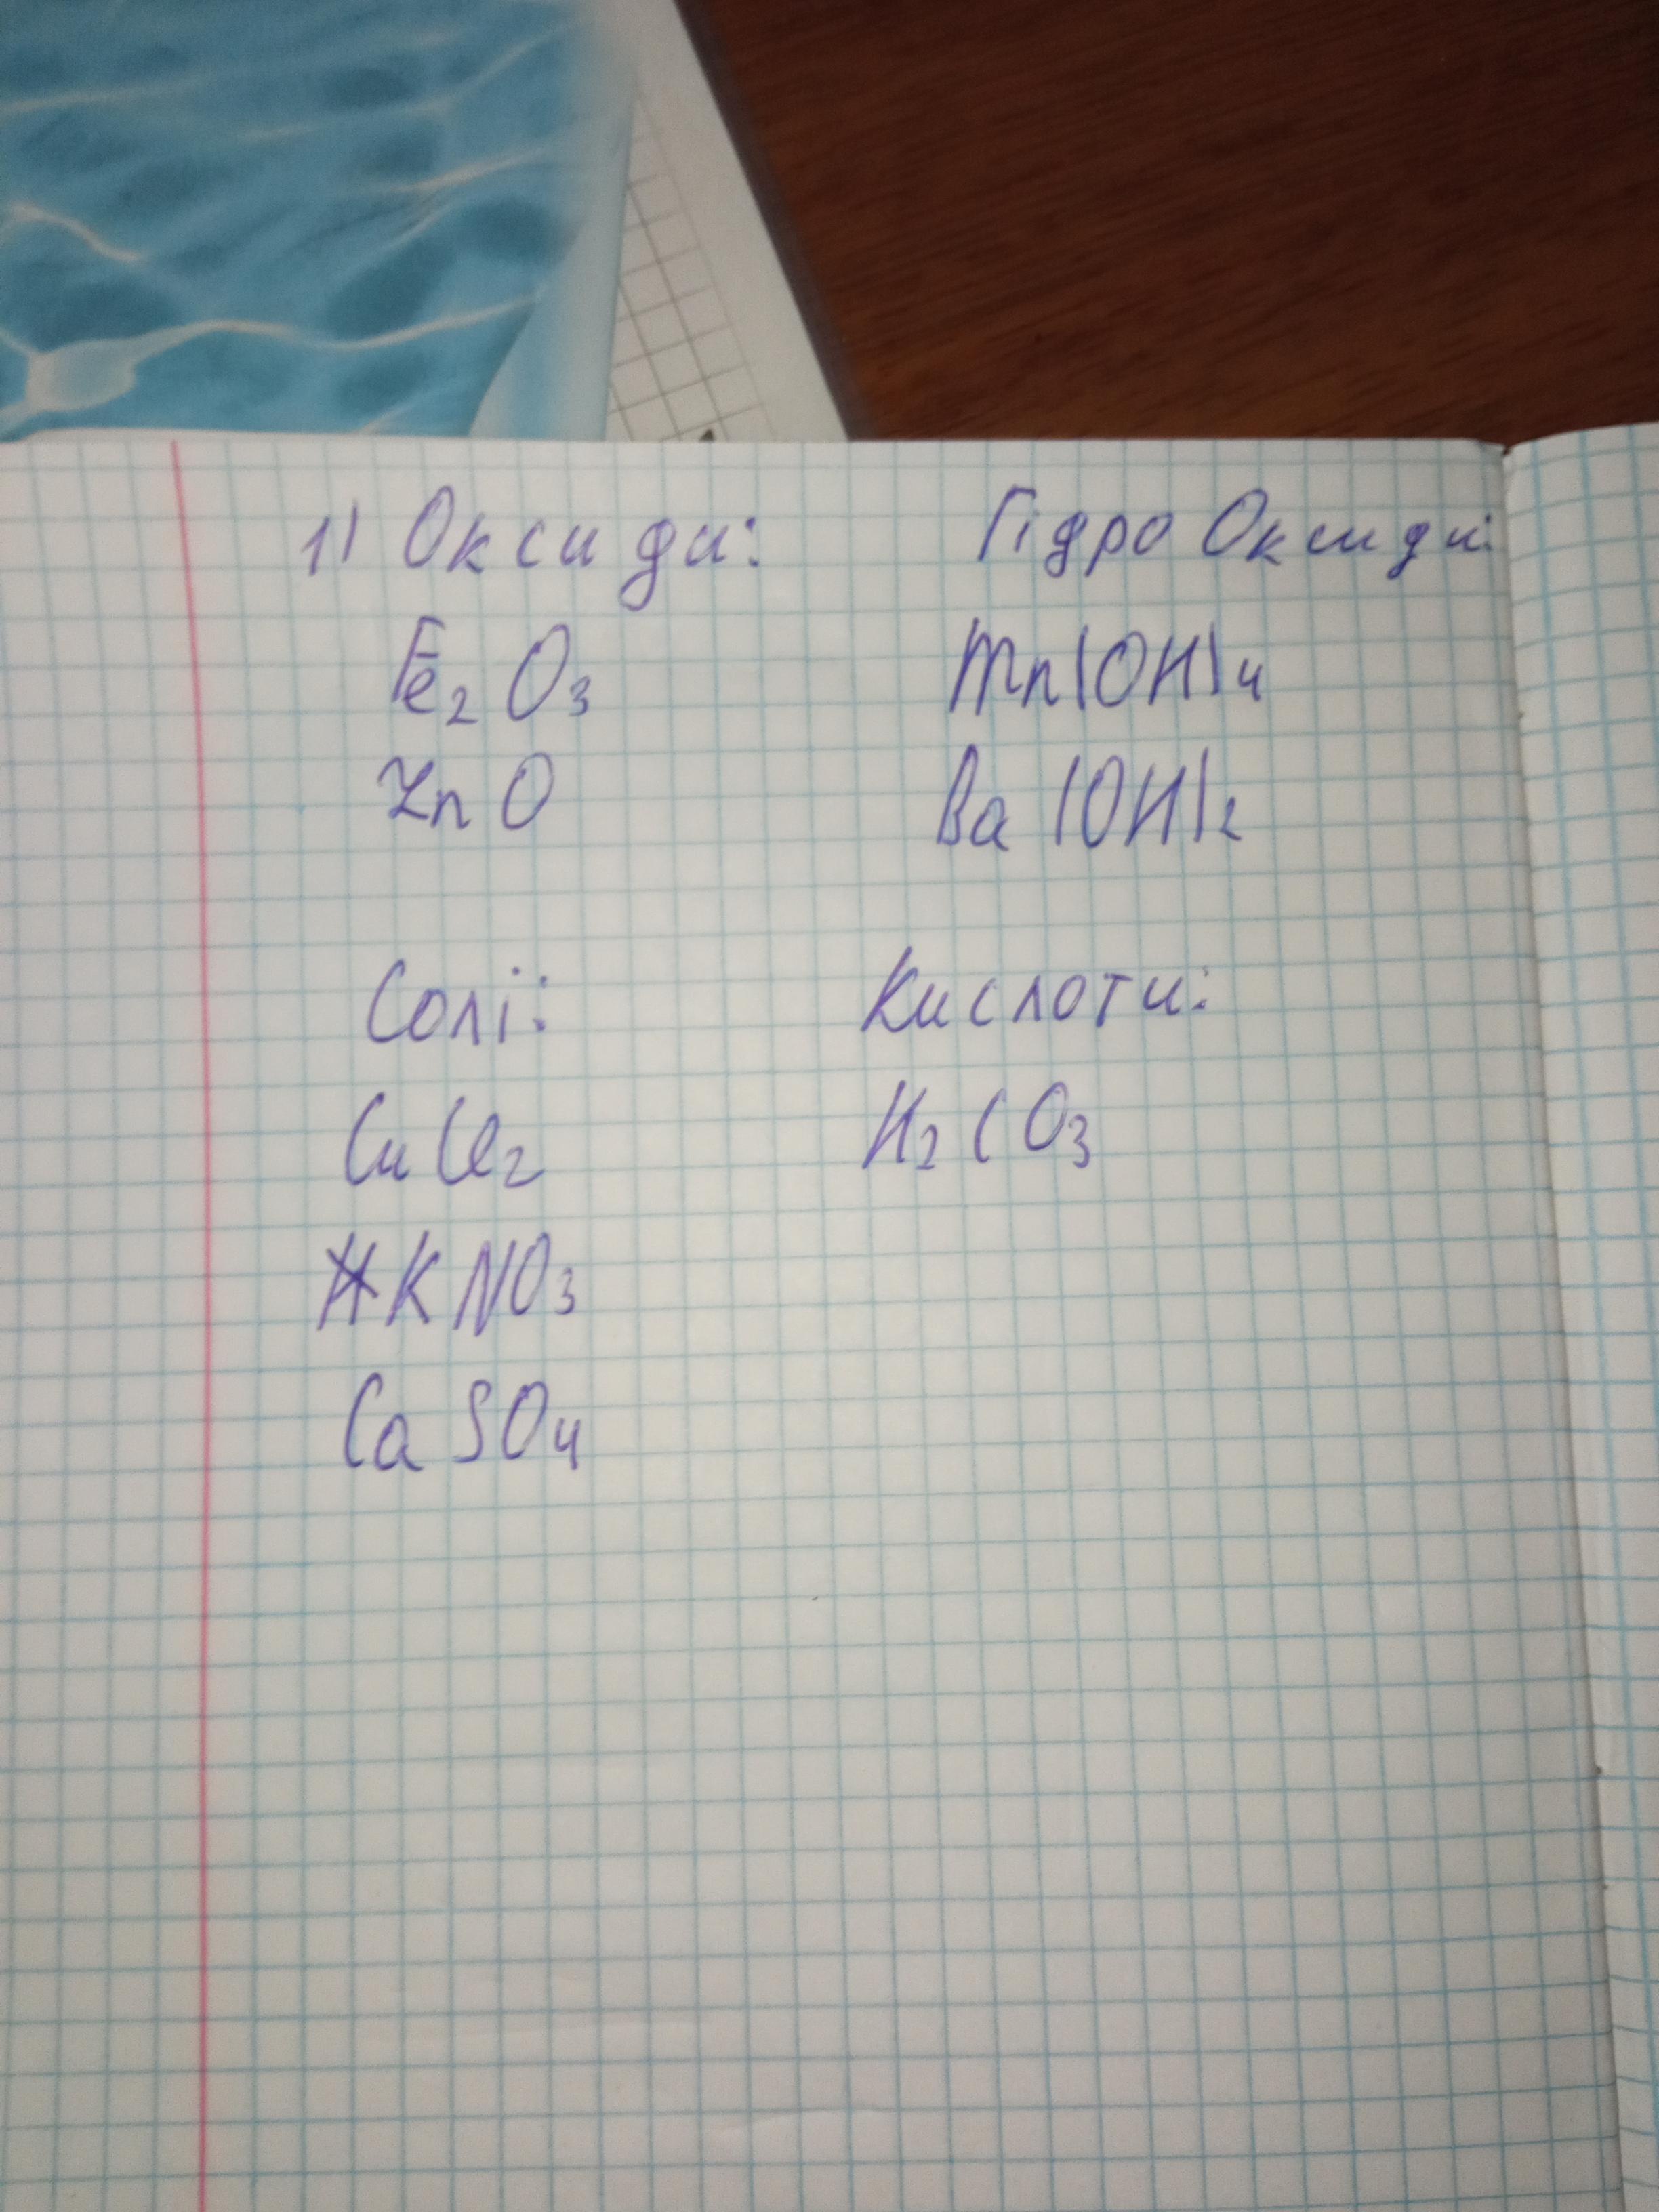 1) Оксиди:
Fe₂O₃
ZnO
Гідро Оксиди:
Mn(OH)₄
Ba(OH)₂
Солі:
CuCl₂
KNO₃
CaSO₄
Кислоти:
H₂CO₃